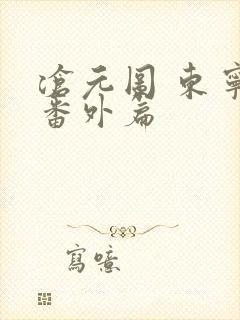 滄元圖 東寧
番外篇
寫噫